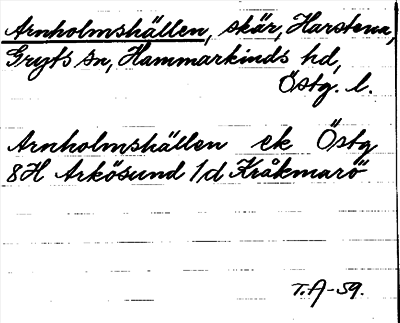 Arnholmshällen, skär, Harstena,
Gryts sn, Hammarkinds hd,
Östg. l.
Arnholmshällen ek Östg
8H Arkösund 1d Kråkmarö
T.A-59.